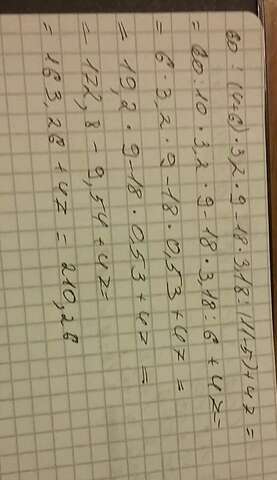 60 : (4+6) · 3,2 · 9 - 18 · 3,18 : (11-5) + 47 =
= 60 : 10 · 3,2 · 9 - 18 · 3,18 : 6 + 47 =
= 6 · 3,2 · 9 - 18 · 0,53 + 47 =
= 19,2 · 9 - 18 · 0,53 + 47 =
= 172,8 - 9,54 + 47 =
= 163,26 + 47 = 210,26